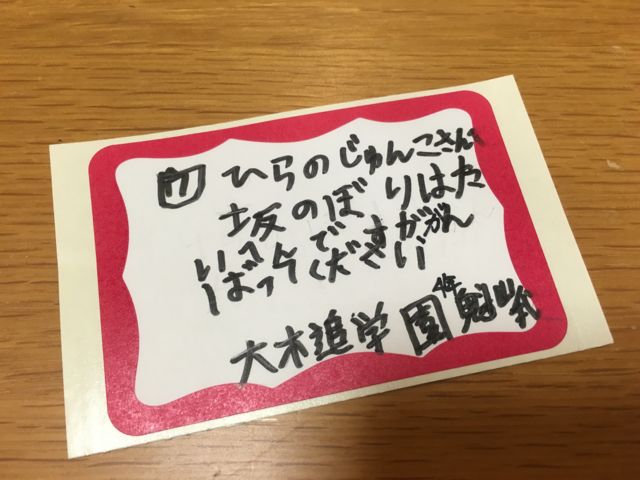 ひらのじゅんこさん
坂のぼりはた
いへんですががん
ばってください
大木追学園 魁